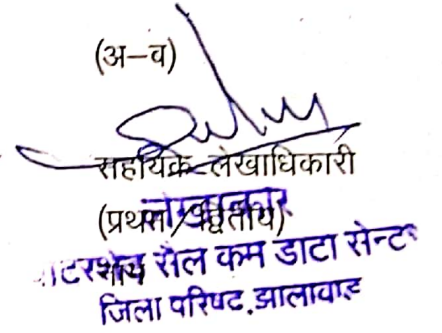 (अ-व)
सहायक लेखाधिकारी
(प्रथम/द्वितीय)
लेखाकार
वाटरशेड सैल कम डाटा सेन्टर
जिला परिषद, झालावाड़